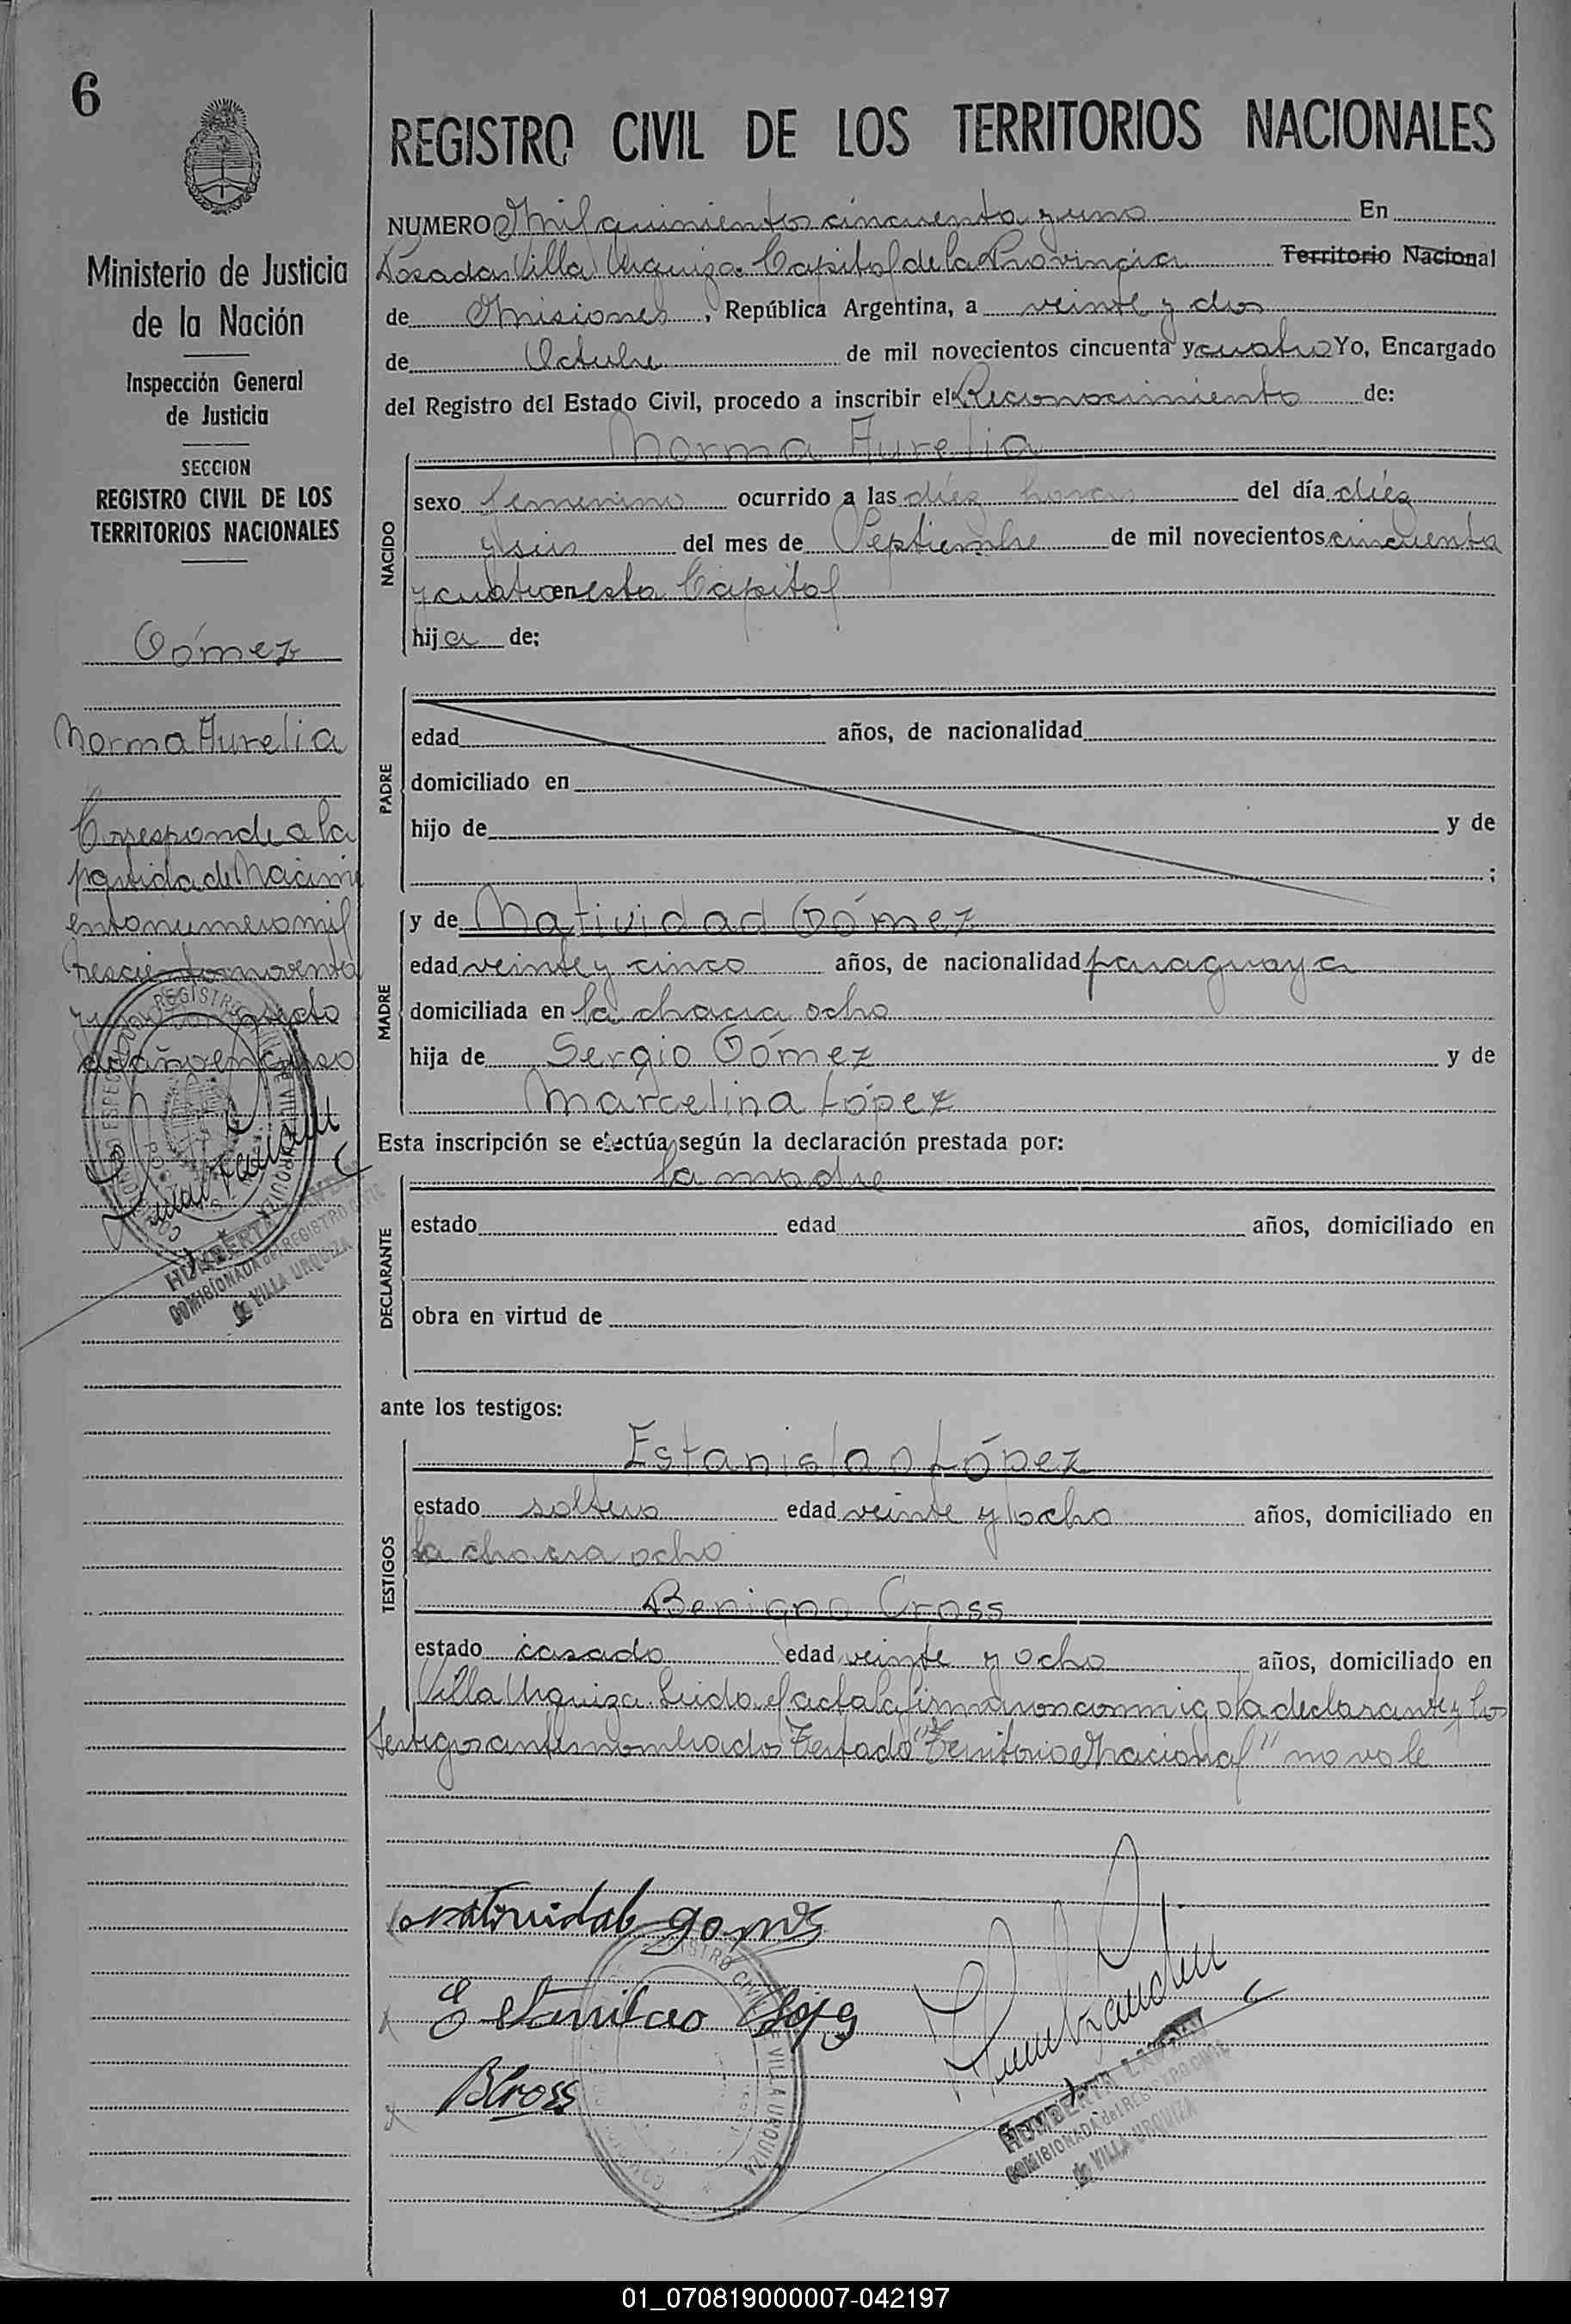 6
Ministerio de Justicia
de la Nación
Inspección General
de Justicia
SECCION
REGISTRO CIVIL DE LOS
TERRITORIOS NACIONALES
Gómez
Norma Aurelia
Corresponde a la
partida de Nacimi
ento numero mil
trescientos noventa
del año en curso
COMISIONADA del REGISTRO CIVIL
de VILLA URQUIZA
REGISTRO CIVIL DE LOS TERRITORIOS NACIONALES
NUMERO Mil quinientos cincuenta y uno En
Posadas Villa Urquiza. Capital de la Provincia Territorio Nacional
de Misiones, República Argentina, a veinte y dos
de Octubre de mil novecientos cincuenta y cuatro Yo, Encargado
del Registro del Estado Civil, procedo a inscribir el Reconocimiento de:
Norma Aurelia
NACIDO
sexo femenino ocurrido a las diéz horas del día diéz
y seis del mes de Septiembre de mil novecientos cincuenta
y cuatro en esta Capital
hija de;
PADRE
edad años, de nacionalidad
domiciliado en
hijo de y de
;
MADRE
y de Natividad Gómez
edad veinte y cinco años, de nacionalidad paraguaya
domiciliada en la chacra ocho
hija de Sergio Gómez y de
Marcelina López
Esta inscripción se efectúa según la declaración prestada por:
la madre
DECLARANTE
estado edad años, domiciliado en
obra en virtud de
ante los testigos:
TESTIGOS
Estanislao López
estado soltero edad veinte y ocho años, domiciliado en
la chacra ocho
Benigno Cross
estado casado edad veinte y ocho años, domiciliado en
Villa Urquiza. Leida el acta la firmaron conmigo la declarante y los
testigos antes nombrados Testado "Territorio Nacional" no vale
natividab gomes
Estanislao
BCross
REGISTRO CIVIL DE VILLA URQUIZA
COMISIONADA del REGISTRO CIVIL
de VILLA URQUIZA
01_070819000007-042197